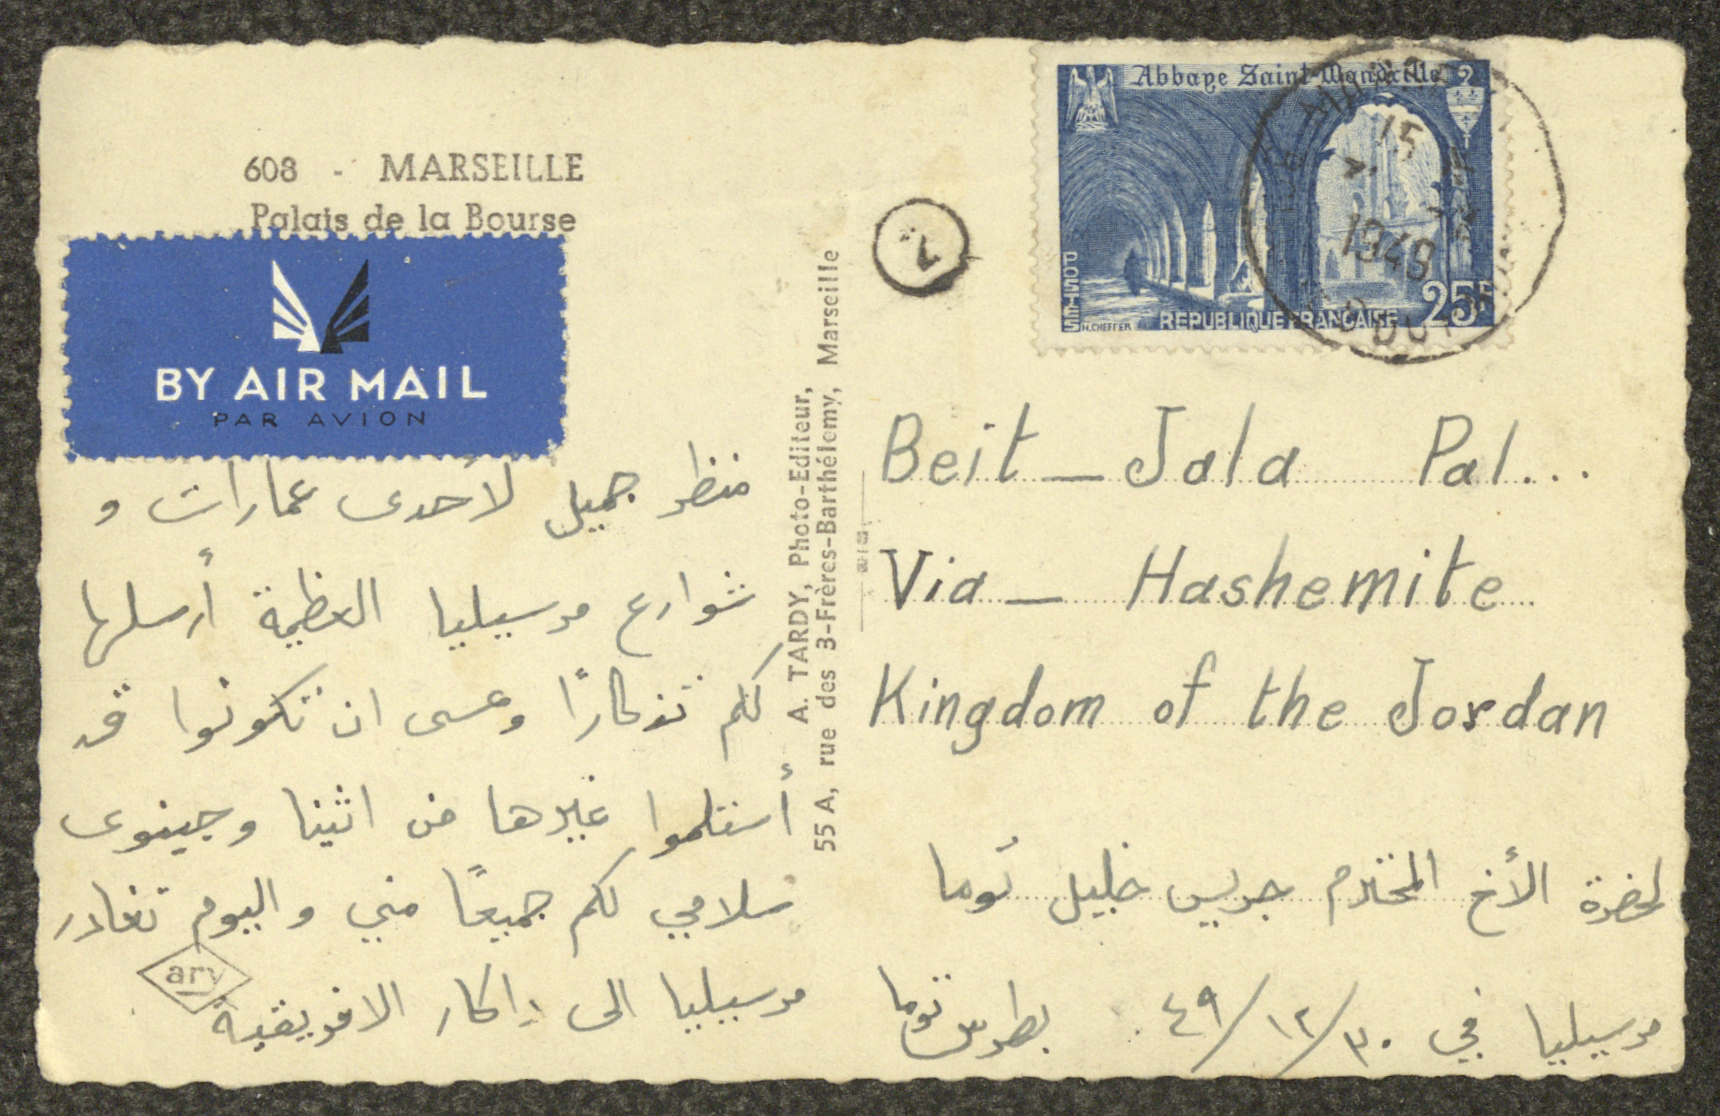 608 - MARSEILLE
Palais de la Bourse
BY AIR MAIL
PAR AVION
منظر جميل لأحدى عمارات و
شوارع مرسيليا العظيمة أرسلها
لكم تذكارًا وعسى ان تكونوا قد
أستلموا غيرها من اثينا وجينوى
سلامي لكم جميعًا مني واليوم نغادر
مرسيليا الى داكار الافريقية
ary
A. TARDY, Photo-Editeur,
55 A, rue des 3-Frères-Barthélemy, Marseille
Abbaye Saint-Wandrille
POSTES
H.CHEFFER
REPUBLIQUE FRANÇAISE
25F
15
1949
Beit - Jala Pal...
Via - Hashemite
Kingdom of the Jordan
لحضرة الأخ المحترم جريس خليل توما
مرسيليا في ٣٠/١٢/٤٩ بطرس توما